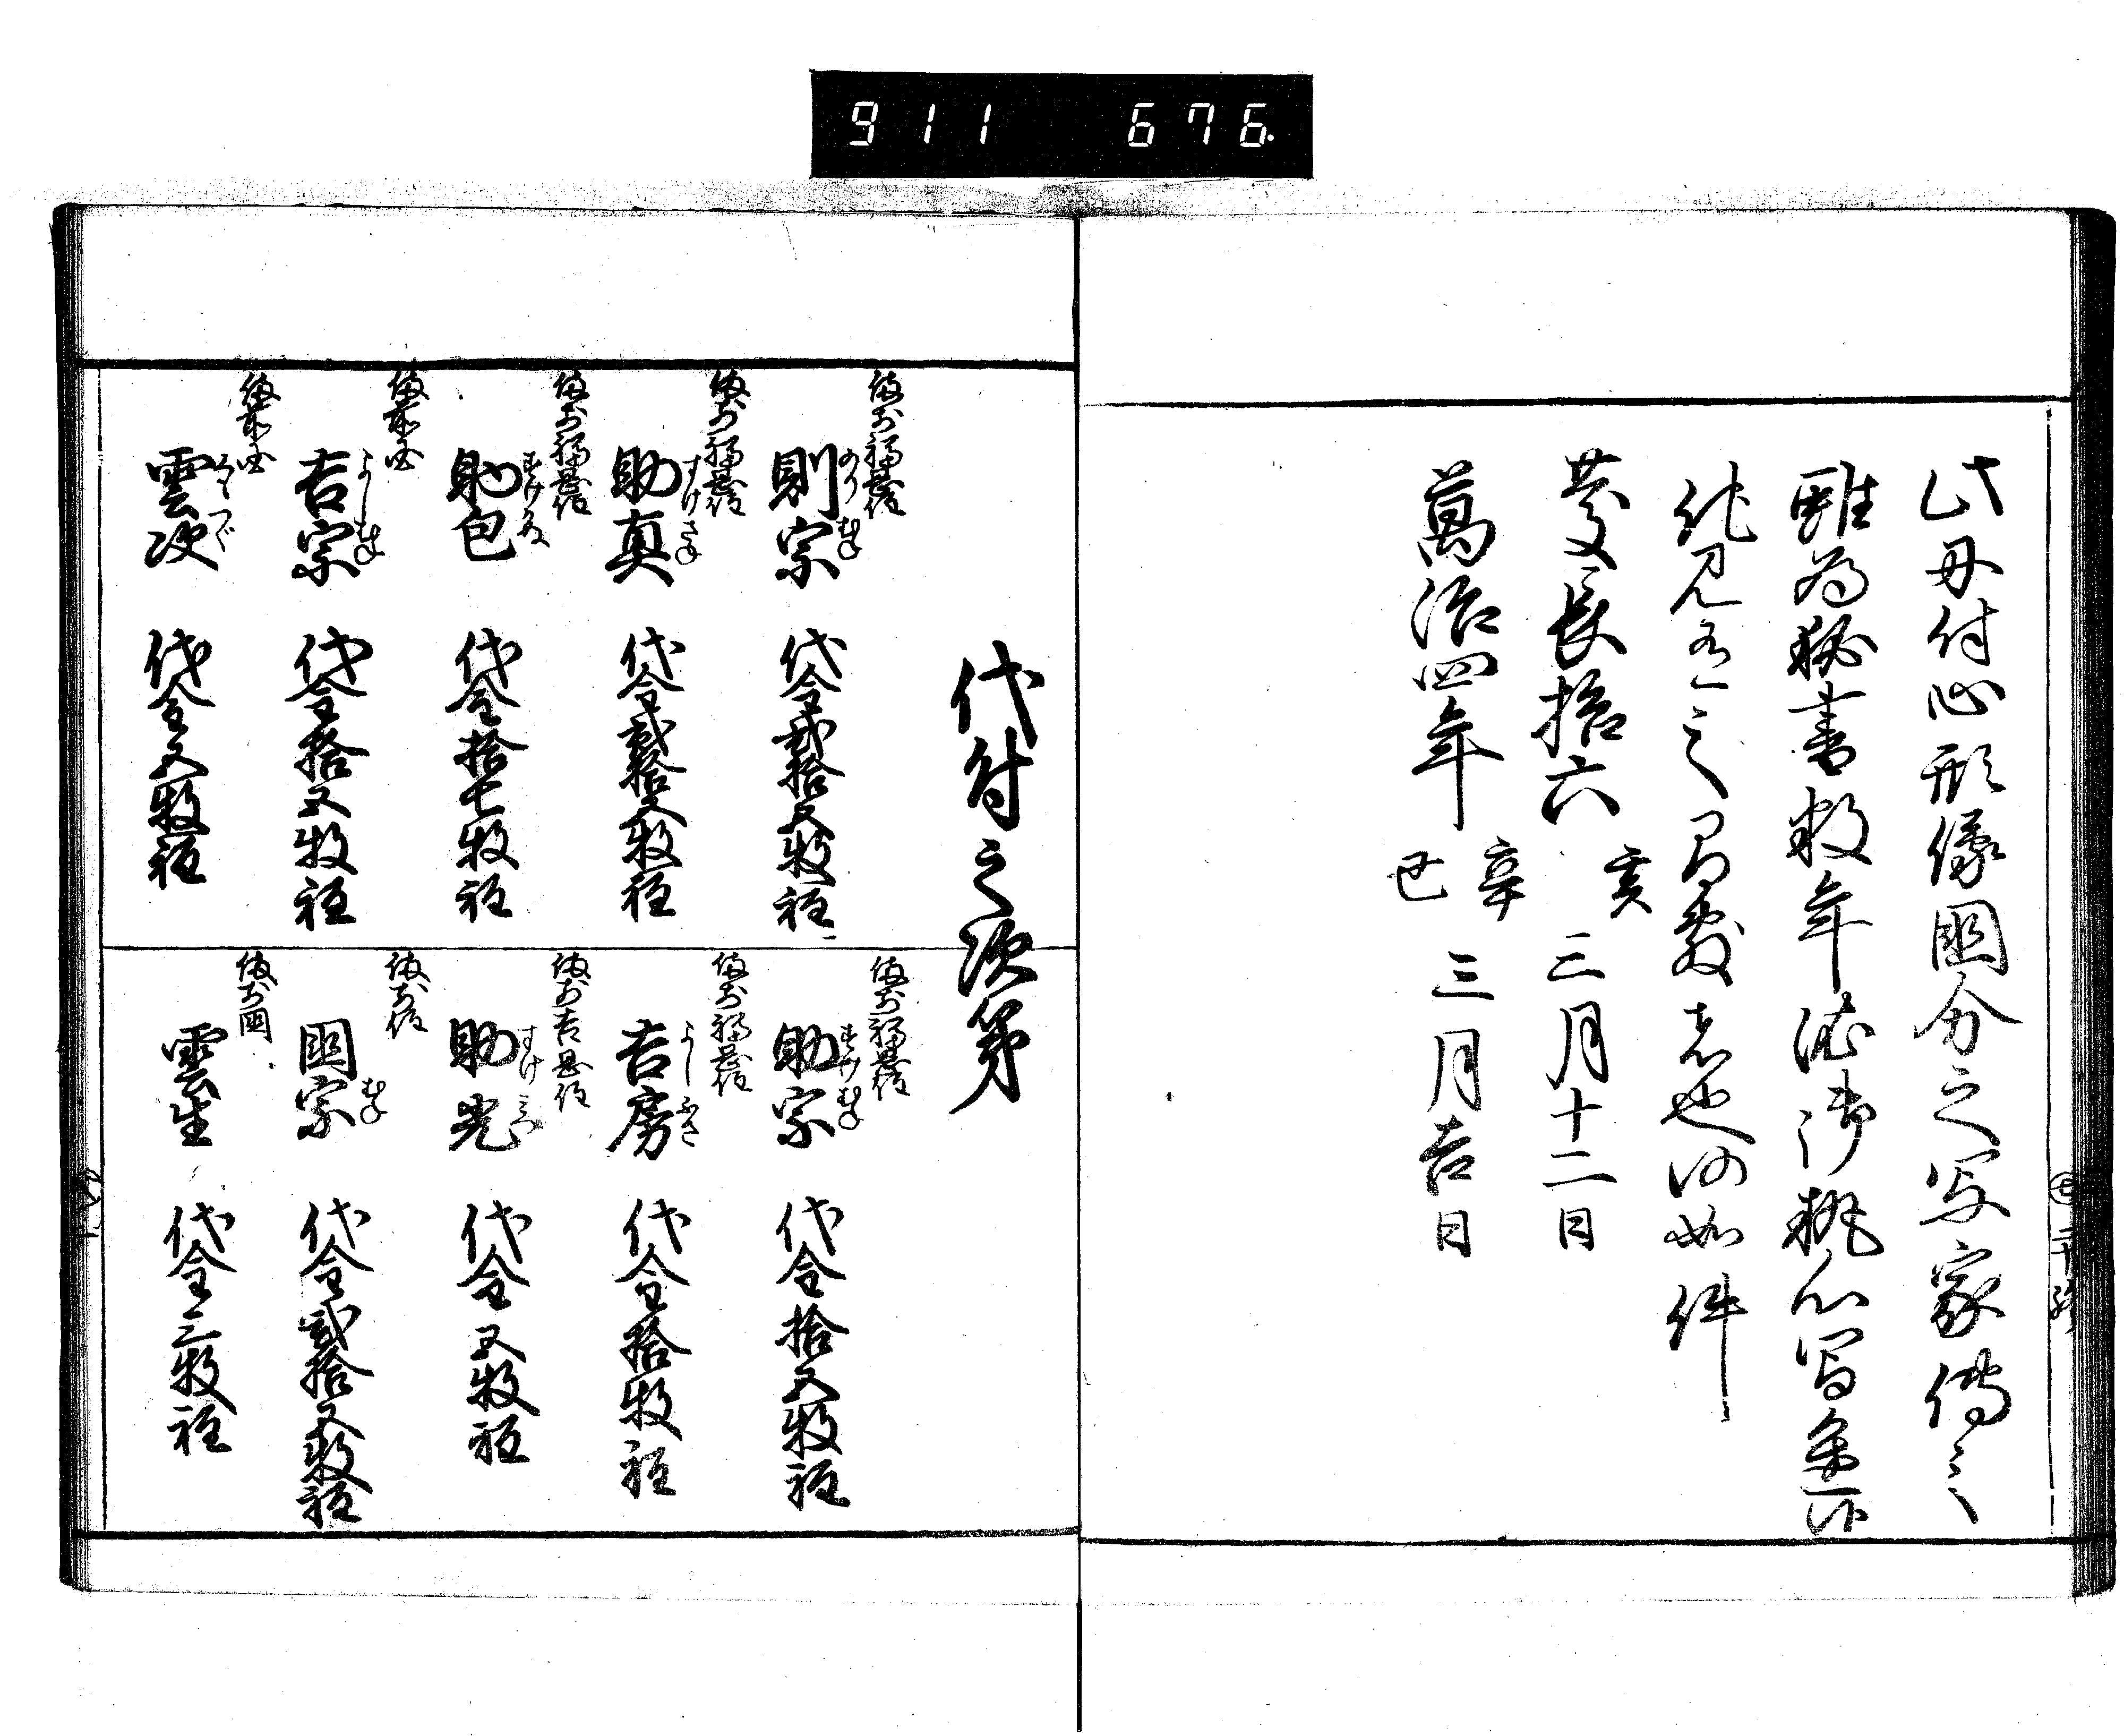 911 676
此母付心形像国分之写家傳之
雖為秘書数年依御執心写進以
他見有之間敷者也仍如件
慶長拾六 亥 三月十二日
萬治四年 辛巳 三月吉日
代付之次第
備前福岡住
則宗 のりむね 代金貳拾五枚程
備前福岡住
助真 すけさね 代金貳拾五枚程
備前福岡住
助包 すけかね 代金拾七枚程
備前国
吉宗 よしむね 代金拾五枚程
備前国
雲次 うんつぐ 代金五枚程
備前福岡住
助宗 すけむね 代金拾五枚程
備前福岡住
吉房 よしふさ 代金拾枚程
備前吉岡住
助光 すけみつ 代金五枚程
備前住
国宗 むね 代金貳拾五枚程
備前国
雲生 代金三枚程